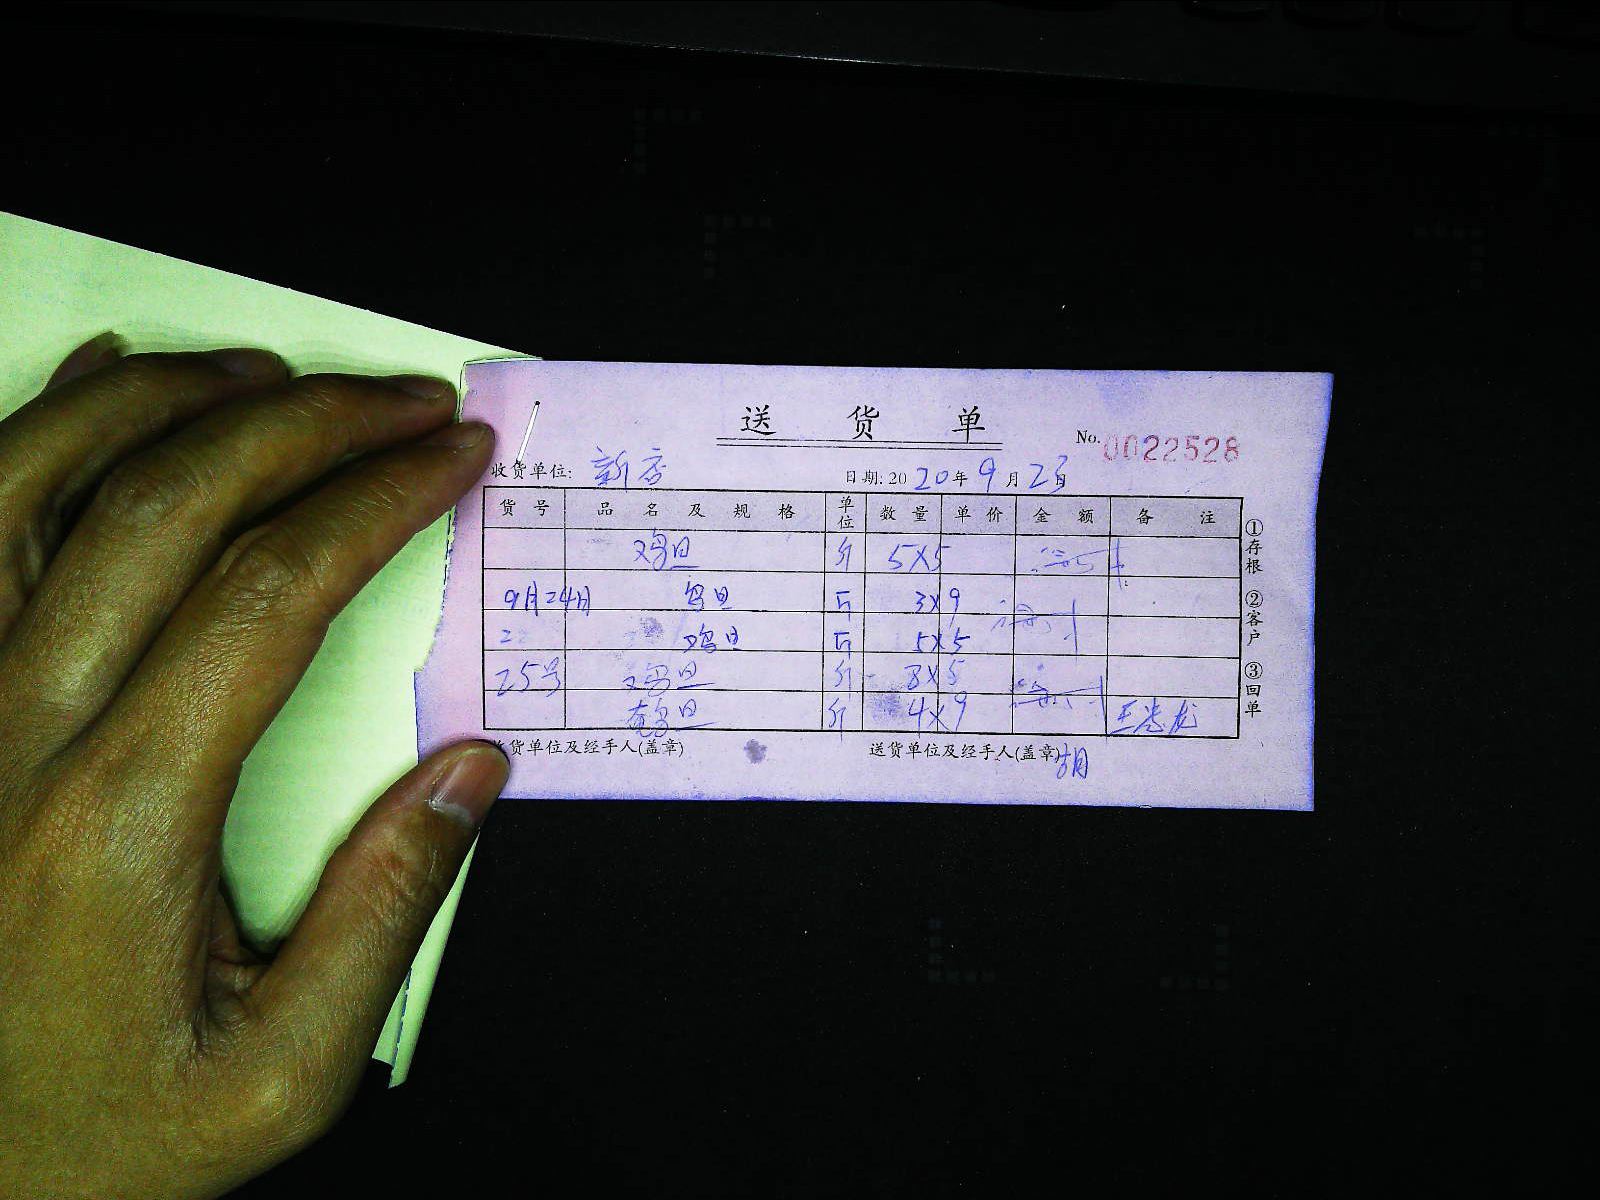 送 货 单
No. 0022528
收货单位: 新店
日期: 2020年 9月 23日
货 号 品 名 及 规 格 单位 数 量 单 价 金 额 备 注
鸡旦 斤 5×5
9月24日 鸡旦 斤 3×9
鸡旦 斤 5×5
25号 鸡旦 斤 3×5
鸡旦 斤 4×9
①存根 ②客户 ③回单
收货单位及经手人(盖章)
送货单位及经手人(盖章) 胡